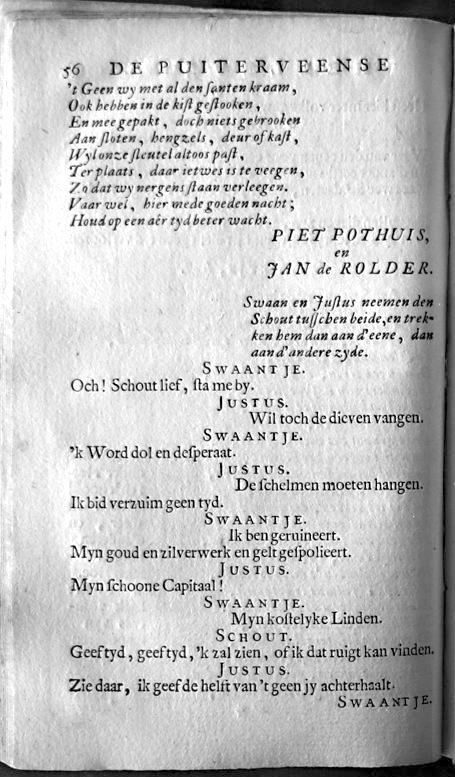 56 DE PUITERVEENSE
't Geen wy met al den ſanten kraam,
Ook hebben in de kiſt geſtooken,
En mee gepakt, doch niets gebrooken
Aan ſloten, hengzels, deur of kaſt,
Wyl onze ſleutel altoos paſt,
Ter plaats, daar ietwes is te veegen,
Zo dat wy nergens ſtaan verleegen.
Vaar wel, hier mede goeden nacht;
Houd op een aêr tyd beter wacht.
PIET POTHUIS,
en
JAN de ROLDER.
Swaan en Juſtus neemen den
Schout tuſſchen beide, en trek-
ken hem dan aan d'eene, dan
aan d'andere zyde.
SWAANTJE.
Och! Schout lief, ſta me by.
JUSTUS.
Wil toch de dieven vangen.
SWAANTJE.
'k Word dol en deſperaat.
JUSTUS.
De ſchelmen moeten hangen.
Ik bid verzuim geen tyd.
SWAANTJE.
Ik ben geruineert.
Myn goud en zilverwerk en gelt geſpolieert.
JUSTUS.
Myn ſchoone Capitaal!
SWAANTJE.
Myn koſtelyke Linden.
SCHOUT.
Geef tyd, geef tyd, 'k zal zien, of ik dat ruigt kan vinden.
JUSTUS.
Zie daar, ik geef de helft van 't geen jy achterhaalt.
SWAANTJE.